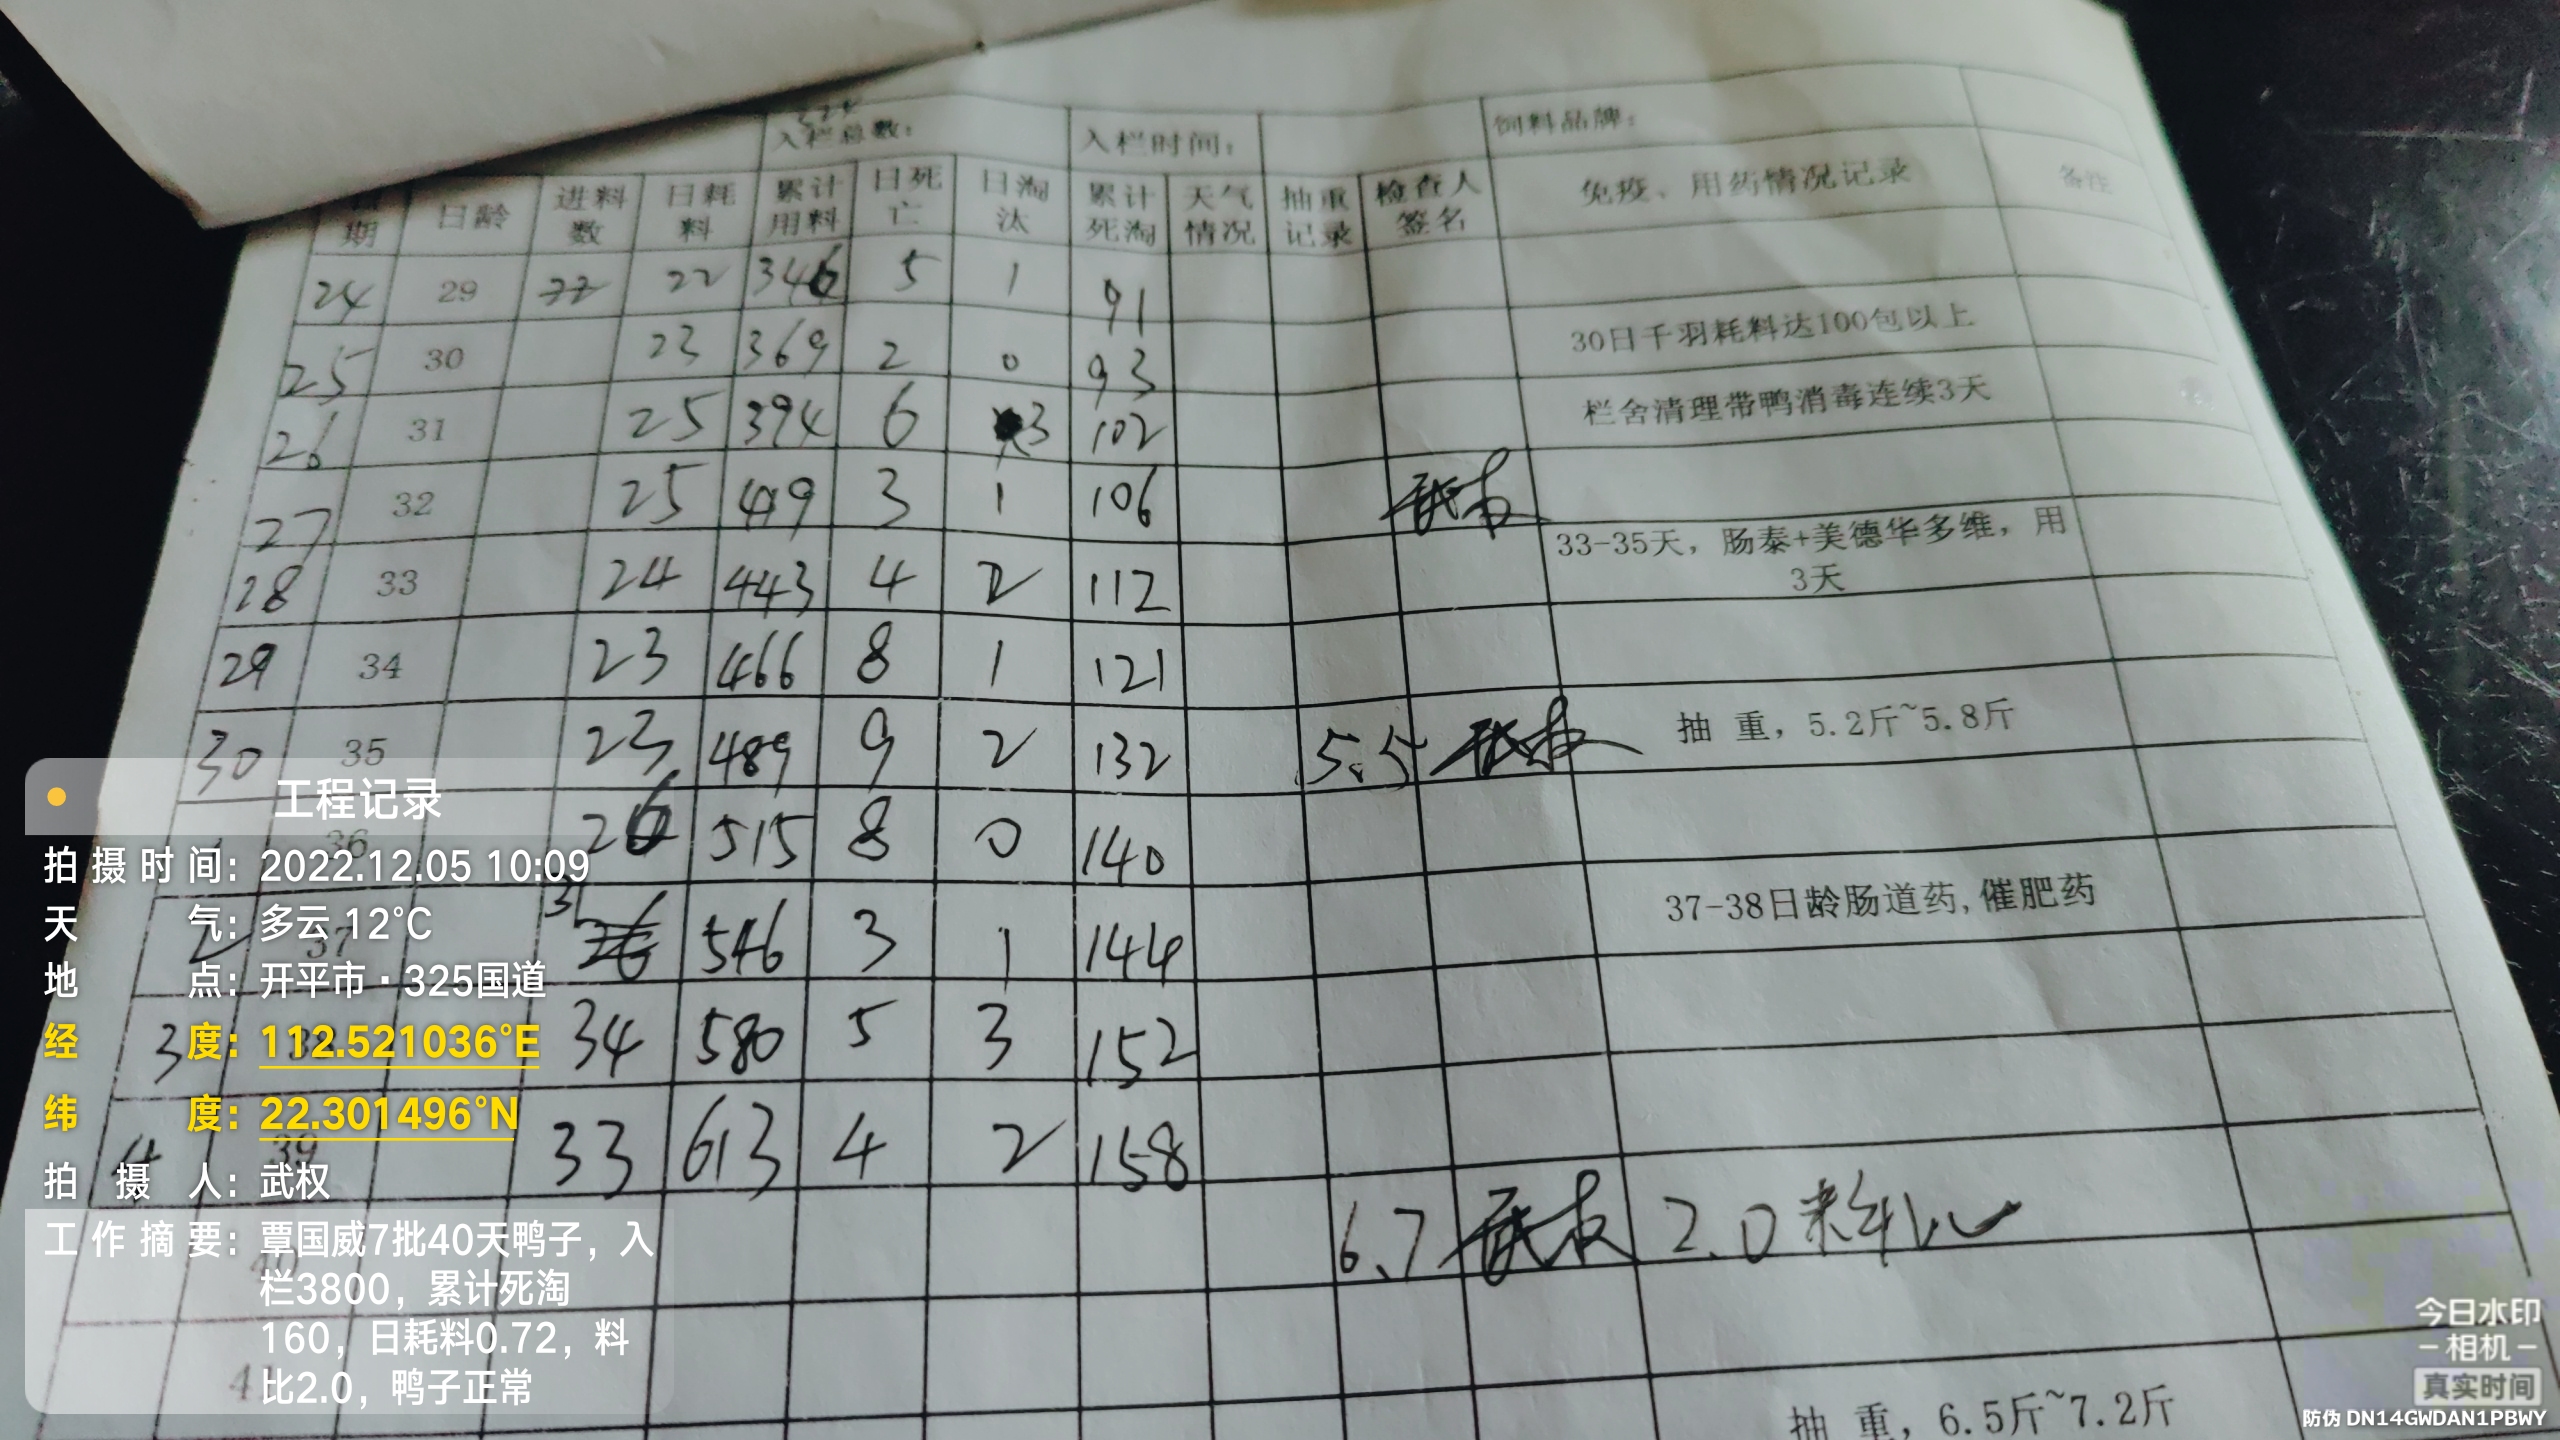 入栏总数： 入栏时间： 饲料品牌：
期 日龄 进料数 日耗料 累计用料 日死亡 日淘汰 累计死淘 天气情况 抽重记录 检查人签名 免疫、用药情况记录 备注
24 29 22 22 346 5 1 91
25 30 23 369 2 0 93 30日千羽耗料达100包以上
26 31 25 394 6 3 102 栏舍清理带鸭消毒连续3天
27 32 25 419 3 1 106 武权
28 33 24 443 4 2 112 33-35天，肠泰+美德华多维，用
3天
29 34 23 466 8 1 121
30 35 23 489 9 2 132 5.5 武权 抽 重，5.2斤~5.8斤
1 36 26 515 8 0 140
2 37 31 26 546 3 1 144 37-38日龄肠道药,催肥药
3 38 34 580 5 3 152
4 39 33 613 4 2 158
40 6.7 武权 2.0料比
41 抽 重，6.5斤~7.2斤
工程记录
拍摄时间：2022.12.05 10:09
天气：多云 12°C
地点：开平市·325国道
经度：112.521036°E
纬度：22.301496°N
拍摄人：武权
工作摘要：覃国威7批40天鸭子，入
栏3800，累计死淘
160，日耗料0.72，料
比2.0，鸭子正常
今日水印
-相机-
真实时间
防伪 DN14GWDAN1PBWY